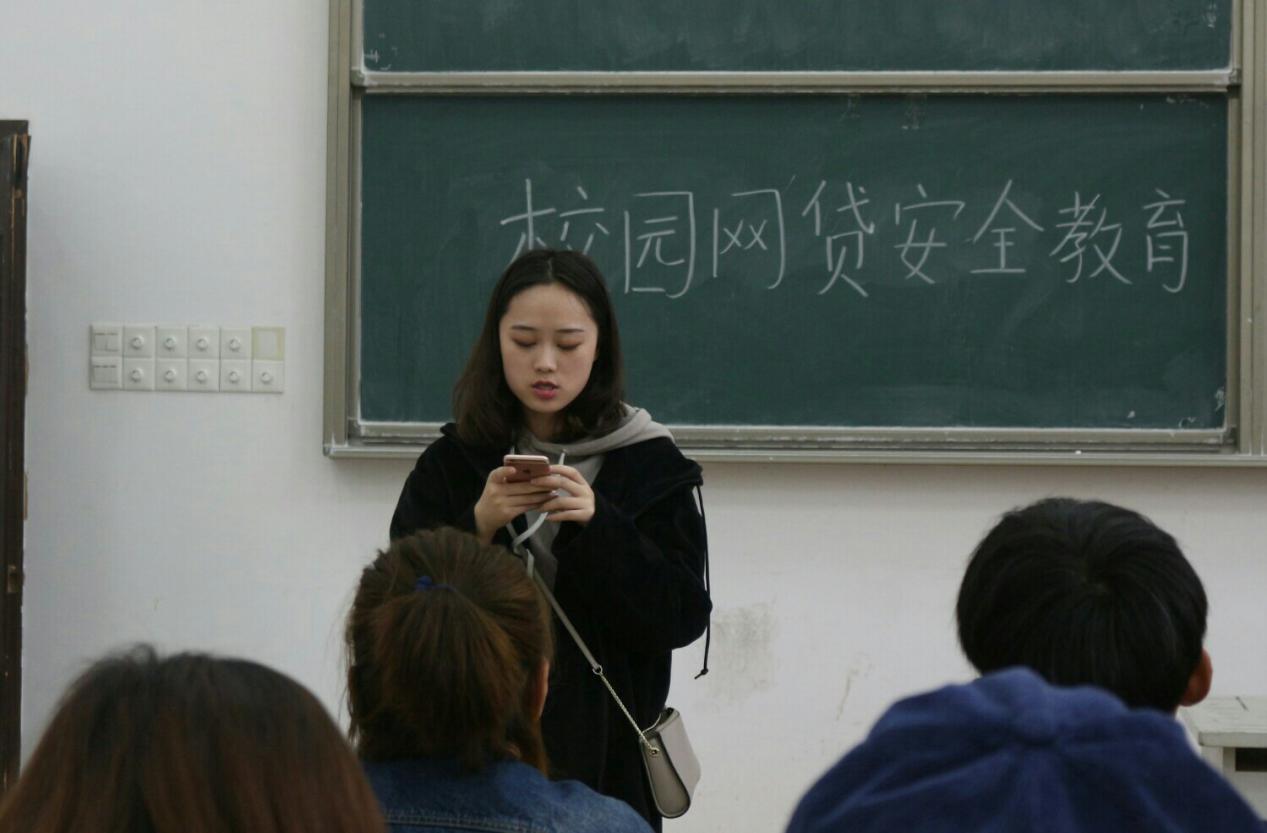 校园网贷安全教育